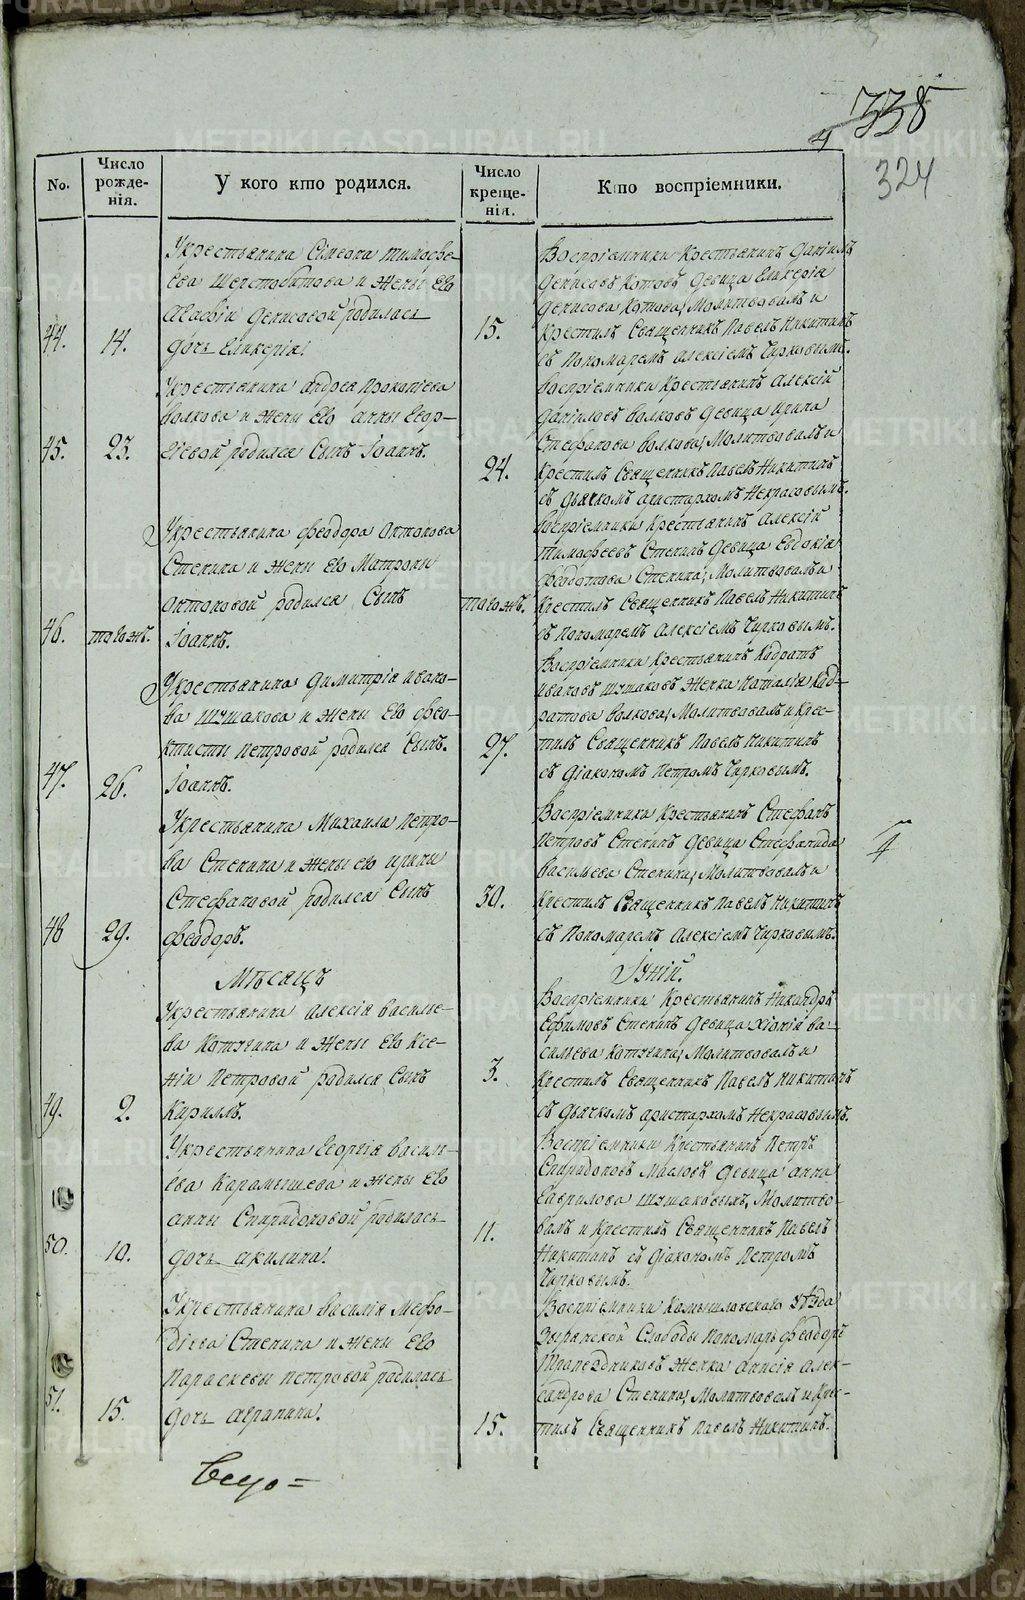 338
4
324
No.
Число рожде-нія.
У кого кто родился.
Число креще-нія.
Кто воспріемники.
У крестьянина Сімеона Тимофе-
ева Шерстобитова и жены его
Денисовой родилась
44. 14. дочь Гликерія.
Воспріемники крестьянинъ Даніилъ
Денисовъ Котовъ девица Гликерія
Денисова Котова; Молитвовалъ и
15. Крестилъ Священникъ Павелъ Никитинъ
съ Пономаремъ Алексіемъ Чирковымъ.
У крестьянина Андрея Прокопіева
Волкова и жены его Анны Егор-
45. 23. гіевой родился сынъ Іоаннъ.
Воспріемники крестьянинъ Алексій
Даніиловъ Волковъ девица Ирина
Стефанова Волкова; Молитвовалъ и
24. Крестилъ Священникъ Павелъ Никитинъ
съ Дьячкомъ Аристархомъ Некрасовымъ.
У крестьянина Феодора Антонова
Степина и жены его Матроны
Антоновой родился сынъ
46. тогожъ. Іоаннъ.
Воспріемники крестьянинъ Алексій
Тимофеевъ Степинъ девица Евдокія
Степина; Молитвовалъ и
тогожъ. Крестилъ Священникъ Павелъ Никитинъ
съ Пономаремъ Алексіемъ Чирковымъ.
У крестьянина Димитрія Ивано-
ва Шушакова и жены его Фео-
ктисты Петровой родился сынъ.
47. 26. Іоаннъ.
Воспріемники крестьянинъ Кодратъ
Ивановъ Шушаковъ женка Наталія Код-
ратова Волкова; Молитвовалъ и крес-
27. тилъ Священникъ Павелъ Никитинъ
съ Діакономъ Петромъ Чирковымъ.
У крестьянина Михаила Петро-
ва Степина и жены его Ирины
Стефановой родился сынъ
48 29. Феодоръ.
Воспріемники крестьянинъ Стефанъ
Петровъ Степинъ девица Стефанида
Васильева Степина; Молитвовалъ и
30. Крестилъ Священникъ Павелъ Никитинъ
съ Пономаремъ Алексіемъ Чирковымъ.
4
Мѣсяцъ Іуній.
У крестьянина Алексія Василье-
ва Котугина и жены его Ксе-
ніи Петровой родился сынъ
49. 2. Кириллъ.
Воспріемники крестьянинъ Никандръ
Ефимовъ Степинъ девица Хіонія Ва-
сильева Котугина; Молитвовалъ и
3. Крестилъ Священникъ Павелъ Никитинъ
съ Дьячкомъ Аристархомъ Некрасовымъ.
У крестьянина Георгія Василь-
ева Карамышева и жены его
Анны Спиридоновой родилась
50. 10. дочь Акилина.
Воспріемники крестьянинъ Петръ
Спиридоновъ Масловъ девица Анна
Гаврилова Шушаковыхъ, Молитво-
11. валъ и Крестилъ Священникъ Павелъ
Никитинъ съ Діакономъ Петромъ
Чирковымъ.
У крестьянина Василія Мефо-
діева Степина и жены его
Параскевы Петровой родилась
51. 15. дочь Агрипина.
Воспріемники Камышловскаго уѣзда
Зырянской Слободы Пономарь Феодоръ
Трапездниковъ женка Анисія Алек-
сандрова Степина; Молитвовалъ и Крес-
15. тилъ Священникъ Павелъ Никитинъ.
METRIKI.GASO-URAL.RU